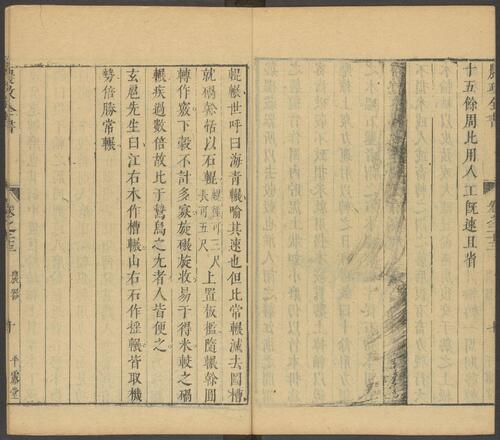 十五餘周比用人工既速且省
輥輾世呼曰海青輾喻其速也但比常輾減去圓槽
就碢榦栝以石輥輥徑可三尺
長可五尺
上置板檻隨輾榦圓
轉作竅下穀不計多寡旋碾旋收易于得米較之碢
輾疾過數倍故比于鷙鳥之尤者人皆便之
玄扈先生曰江右木作槽輾山右石作搖輾皆取機
勢倍勝常輾
農政全書
卷之二十三
農器
十
平露堂